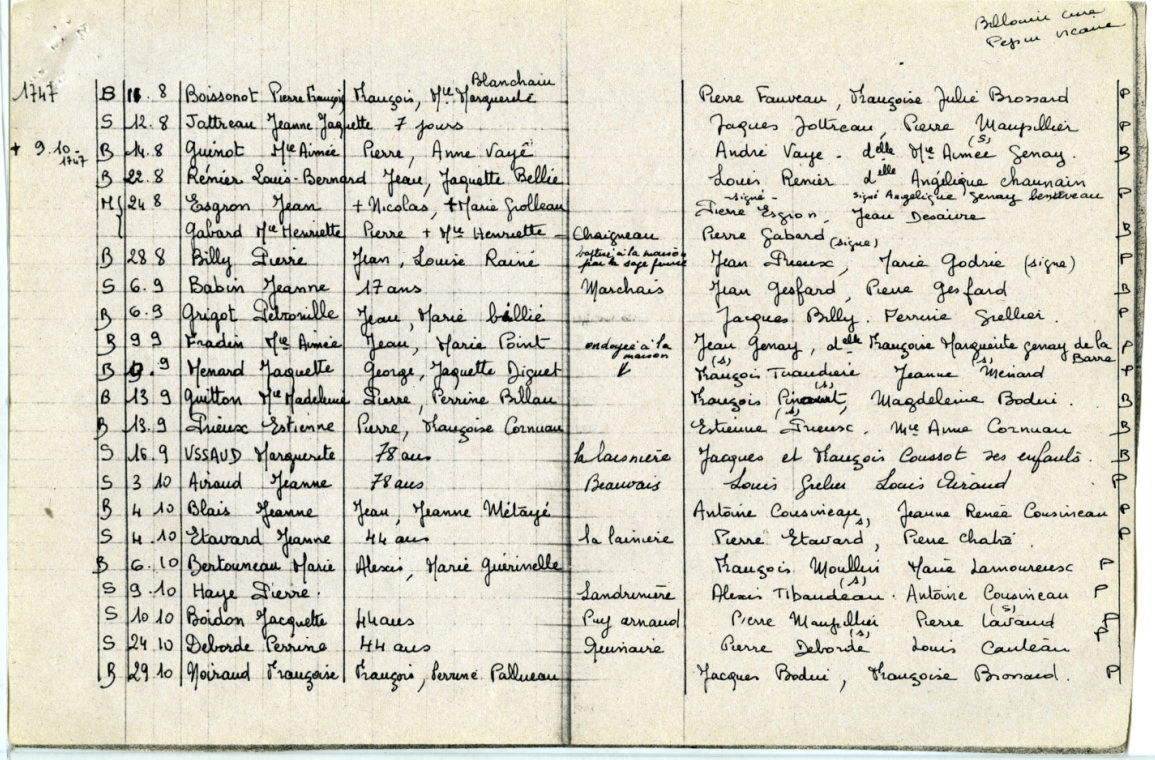 Billouin curé
Pepin vicaire
Blanchain
1747 B 11. 8 Boissonot Pierre François François, Mie Marguerite Pierre Fauveau, Françoise Julie Brossard P
S 12. 8 Jattreau Jeanne Jaquette 7 jours Jaques Jottreau, Pierre Maupillier (s) P
+ 9.10.1747 B 14. 8 Guinot Mie Aimée Pierre, Anne Vayé André Vaye - delle Mie Aimée Genay. B
B 22.8 Rénier Louis-Bernard Jean, Jaquette Bellie Louis Renier delle Angélique chaunain
-signé- signé Angelique Genay benetreau
M 24 8 Esgron Jean + Nicolas, + Marie Grolleau Pierre Esgron, Jean Desaivre P
Gabard Mie Henriette Pierre + Mie Henriette - Chaigneau Pierre Gabard (signe) B
B 28 8 Billy Pierre Jean, Louise Rainé baptisé à la maison par la sage femme Jean Prieux, Marie Godrie (signe) P
S 6. 9 Babin Jeanne 17 ans Marchais Jean Gesfard, Pierre Gesfard P
B 6.9 Grigot Pétronille Jean, Marie bellie Jacques Billy. Perrine Grellier. P
B 9 9 Fradin Mie Aimée Jean, Marie Point ondoyée à la maison Jean Genay, delle Françoise Marguerite genay de la Barre P
B 9. 9 Menard Jaquette George, Jaquette Diguet (s) François Tuaudiere Jeanne (s) Menard P
B 13 9 Guitton Mie Madeleine Pierre, Perrine Billau François (s), Magdeleine Bodin. B
B 13.9 Prieux Estienne Pierre, Françoise Cornuau (s) Estienne Prieux. Mie Anne Cornuau B
S 16.9 VSSAUD Marguerite 78 ans la laisniere Jacques et François Coussot ses enfants. B
S 3 10 Airaud Jeanne 78 ans Beauvais Louis Grelier Louis Airaud P
B 4 10 Blais Jeanne Jean, Jeanne Métayé Antoine Cousineau, Jeanne Renée Cousineau P
S 4.10 Etavard Jeanne 44 ans la lainiere Pierre Etavard (s), Pierre Chatré. P
B 6.10 Bertouneau Marie Alexis, Marie Guérinelle François Moullin Marie Lamoureux P
S 9.10 Haye Pierre. Landrinière Alexis Tibaudeau (s). Antoine Cousineau P
S 10 10 Boidon Jacquette 44 ans Puy arnaud Pierre Maupillier Pierre Lavaud (s) P
S 24 10 Deborde Perrine 44 ans Pierre Deborde (s) Louis Cauteau P
B 29.10 Noiraud Françoise François, Perrine Pallueau Jacques Bodin, Françoise Brossard. P